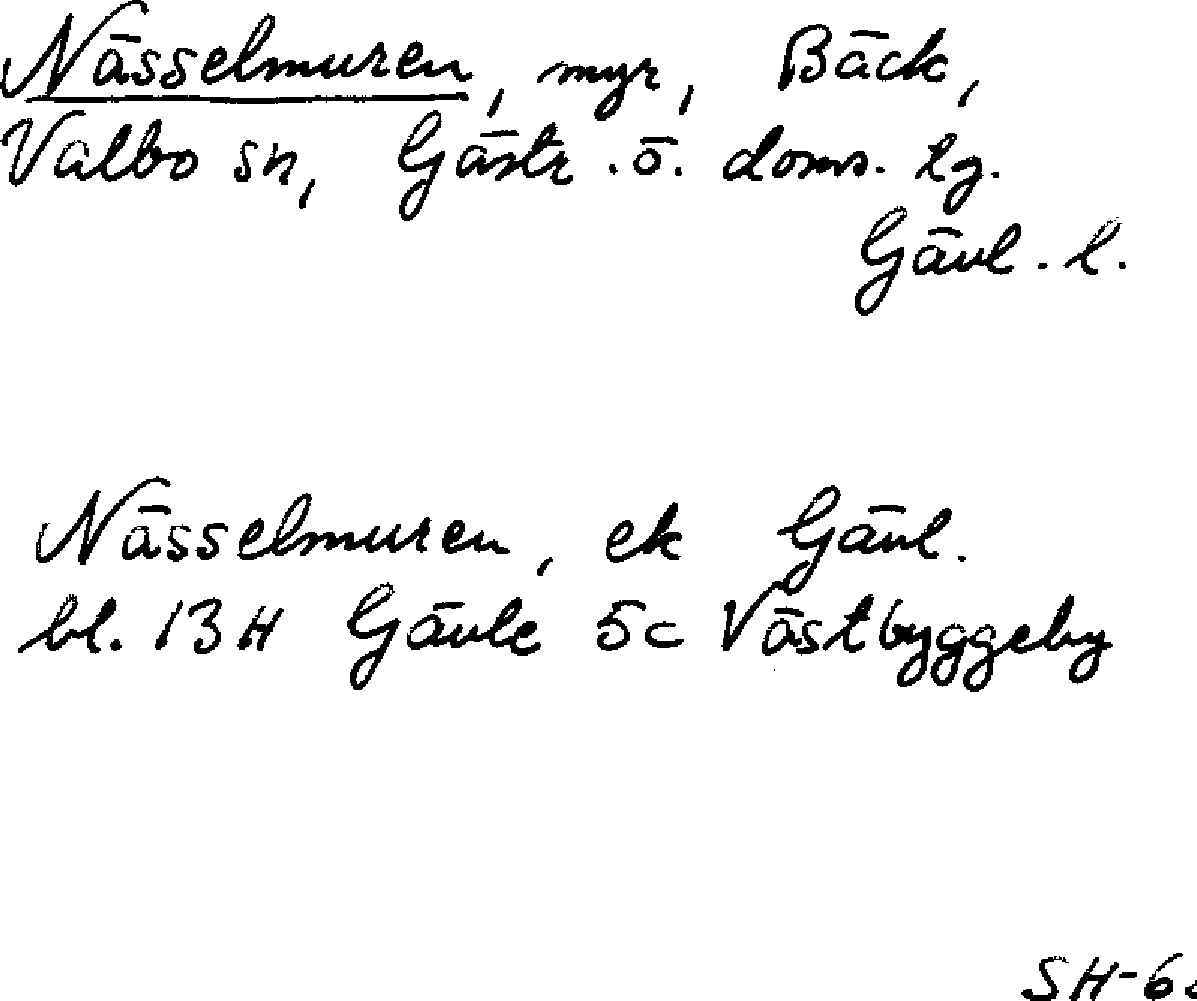 Nässelmuren, myr, Bäck,
Valbo sn, Gästr. ö. doms. tg.
Gävl. l.
Nässelmuren, ek Gävl.
bl. 13H Gävle 5c Västbyggeby